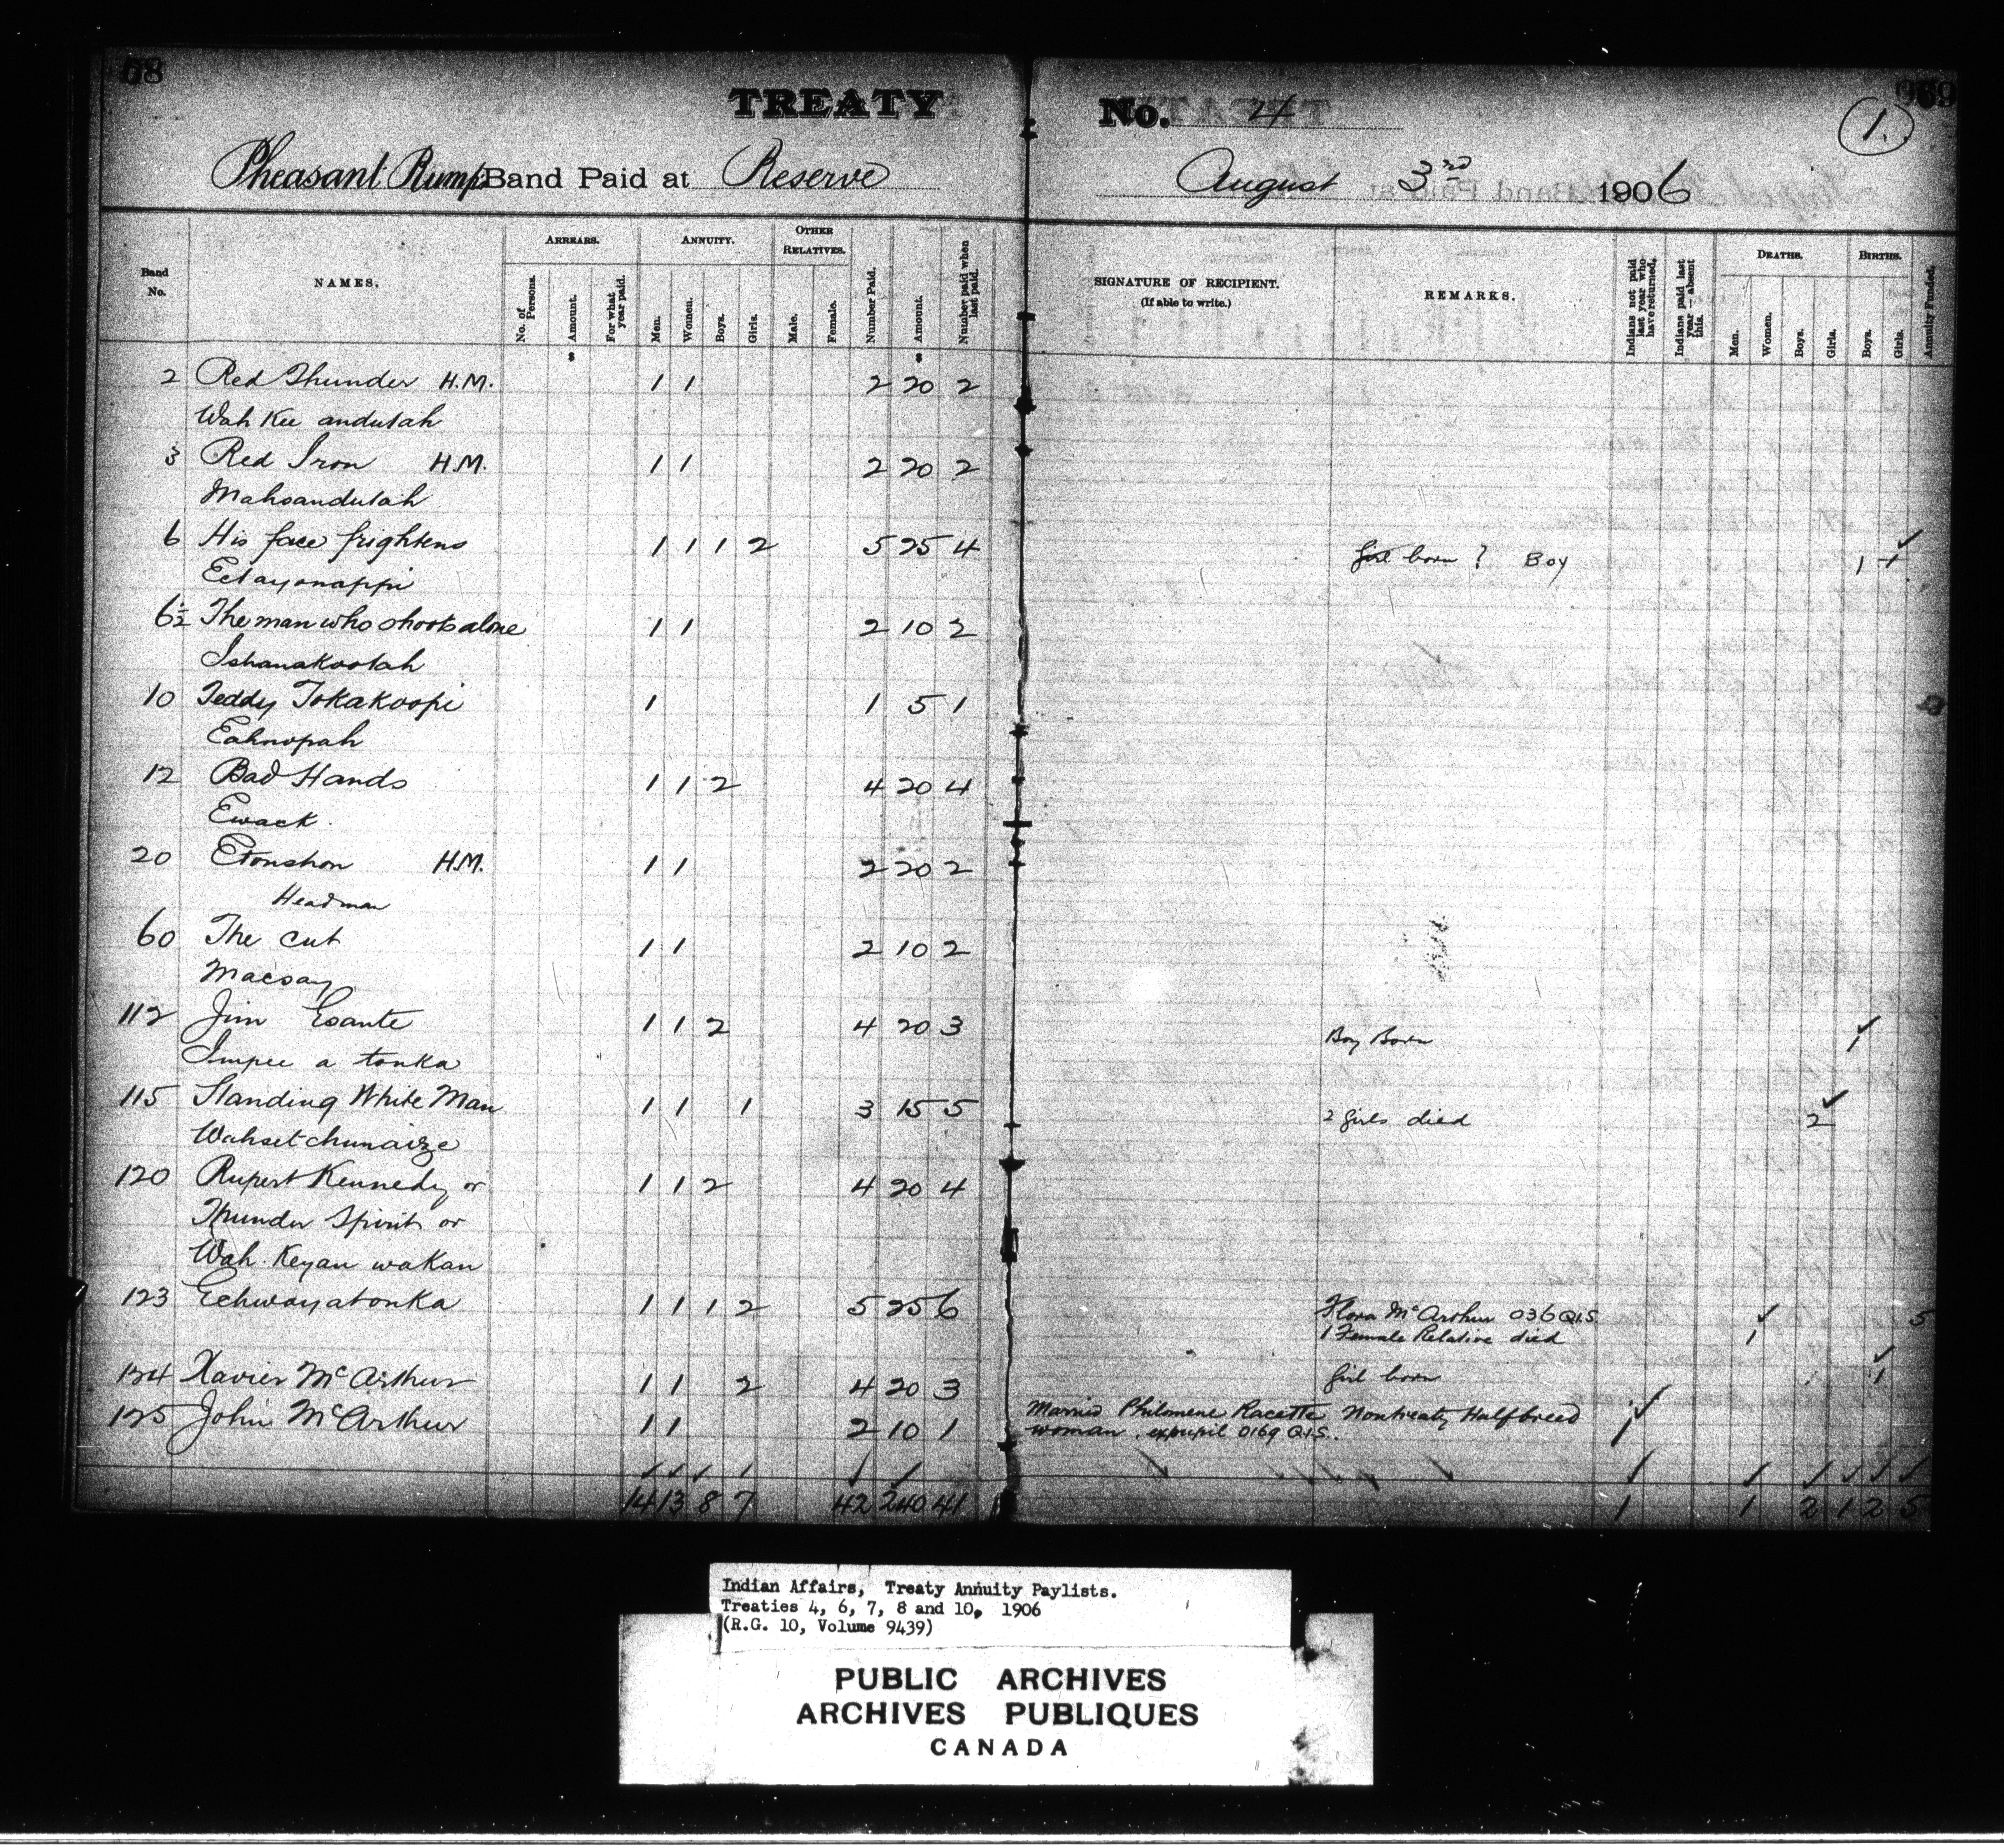 68
969
TREATY No. 4
1.
Pheasant Rump Band Paid at Reserve August 3rd 1906
Band No.
NAMES.
ARREARS.
No. of Persons.
Amount.
For what year paid.
ANNUITY.
Men.
Women.
Boys.
Girls.
OTHER RELATIVES.
Male.
Female.
Number Paid.
Amount.
Number paid when last paid.
SIGNATURE OF RECIPIENT.
(If able to write.)
REMARKS.
Indians not paid last year who have returned.
Indians paid last year — absent this.
DEATHS.
Men.
Women.
Boys.
Girls.
BIRTHS.
Boys.
Girls.
Annuity Funded.
2 Red Thunder H.M. 1 1 2 20 2
Wah Kee andutah
3 Red Iron H.M. 1 1 2 20 2
Mahsandutah
6 His face frightens 1 1 1 2 5 25 4 Girl born ? Boy 1 1
Eetayonappi
6½ The man who shoots alone 1 1 2 10 2
Ishanakootah
10 Teddy Tokakoopi 1 1 5 1
Eahnopah
12 Bad Hands 1 1 2 4 20 4
Ewack
20 Etonshon H.M. 1 1 2 20 2
Headman
60 The Cut 1 1 2 10 2
Macsay
112 Jim Esante 1 1 2 4 20 3 Boy Born 1
Impee a tonka
115 Standing White Man 1 1 1 3 15 5 2 girls died 2
Wahsetchunaize
120 Rupert Kennedy or 1 1 2 4 20 4
Thunder Spirit or
Wah Keyan wakan
123 Echwayatonka 1 1 1 2 5 25 6 Flora McArthur 036 Q.I.S. 5
1 Female Relative died 1
124 Xavier McArthur 1 1 2 4 20 3 Girl born 1
125 John McArthur 1 1 2 10 1 Married Philomene Racette Nontreaty Halfbreed 1
woman. expupil 0169 Q.I.S.
14 13 8 7 42 240 41 1 1 2 1 2 5
Indian Affairs, Treaty Annuity Paylists.
Treaties 4, 6, 7, 8 and 10, 1906
(R.G. 10, Volume 9439)
PUBLIC ARCHIVES
ARCHIVES PUBLIQUES
CANADA